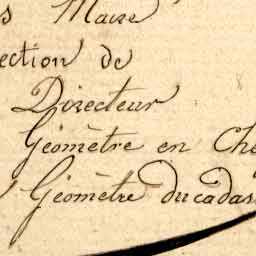 s Maire
ection de
Directeur
Géomètre en Che
Géomètre du cadas